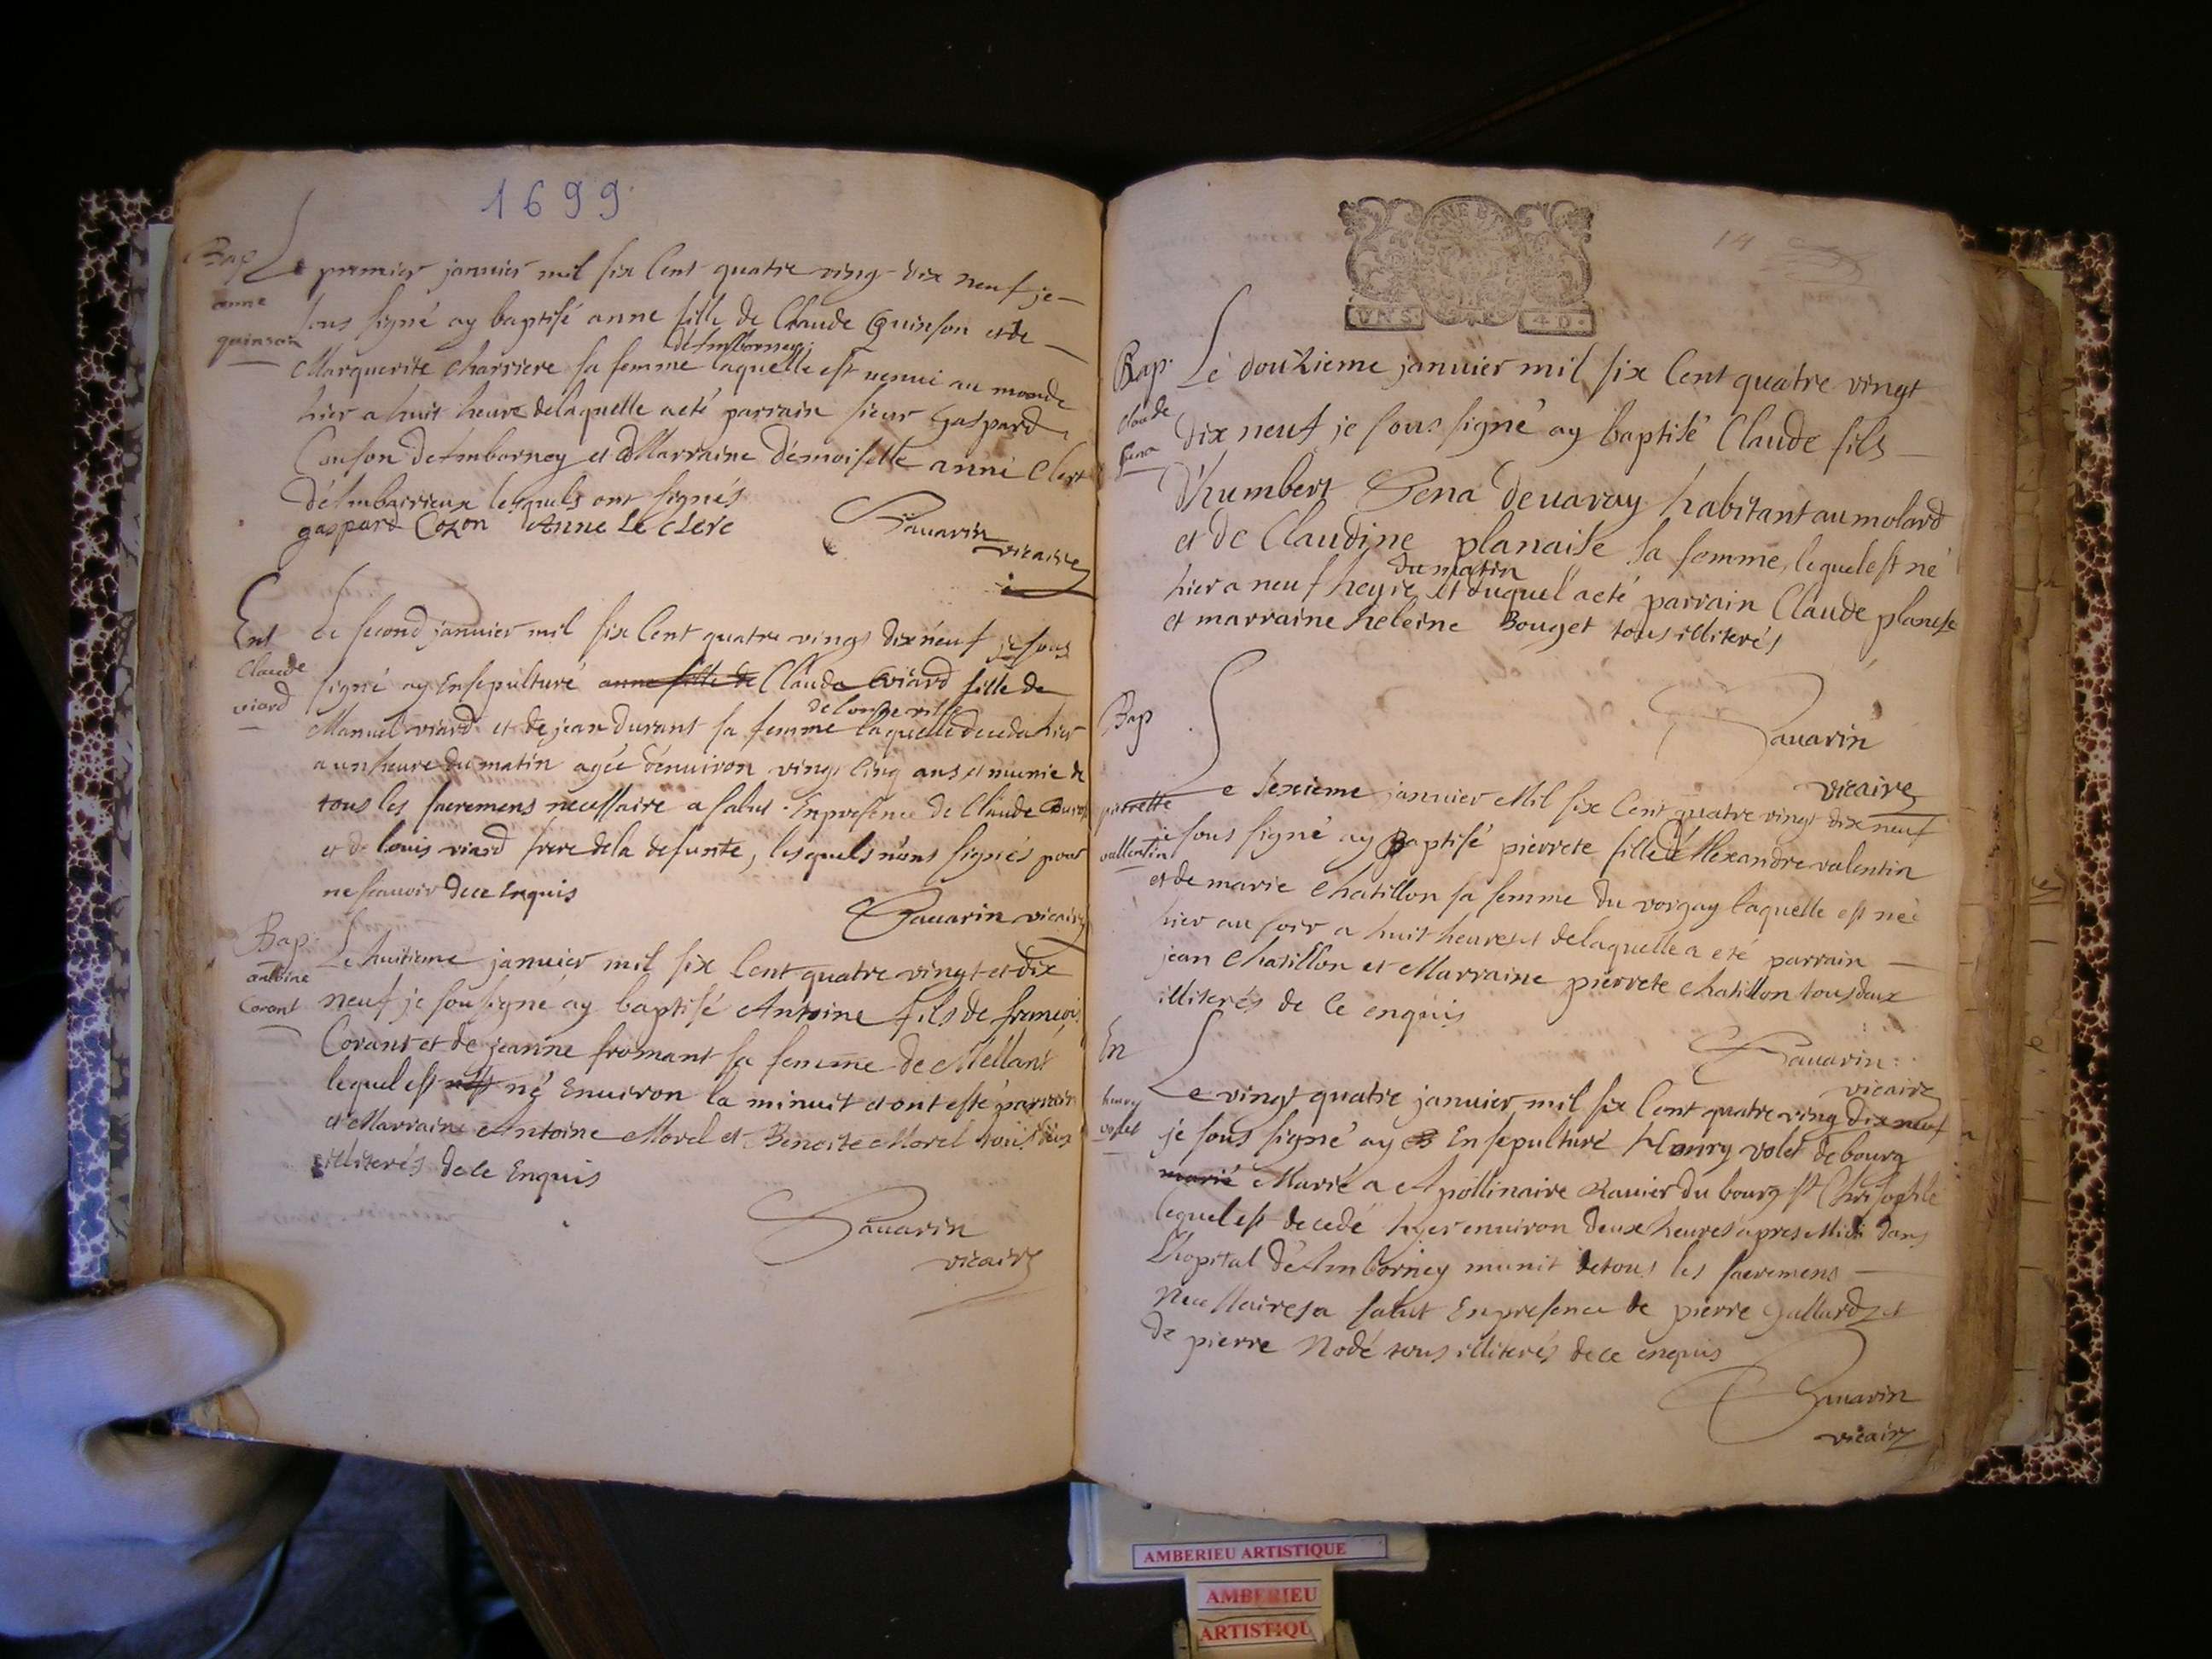 1699
Bap
anne
quinson
Le premier januier mil six Cent quatre ving-dix neuf je
sous signé ay baptisé anne fille de Claude Quinson et de
d'Amborney
Marguerite charriere sa femme laquelle est venue au monde
hier a huit heure de laquelle a eté parrain sieur Gaspard
Conson d'Amborney et Marraine démoiselle anne Clert
d'Ambairieux lesquels ont signés
gaspard Cozon Anne Le clerc
Sauarin
vicaire
Ent
Claude
viard
Le second januier mil six Cent quatre vings dix neuf je sous
signé ay Ensepulturé anne fille de Clauda viard fille de
de longeville
Manuel viard et de jean durant sa femme laquelle deceda hier
a un heure du matin agée d'enuiron vingt cinq ans et munie de
tous les sacremens necessaire a salut. En presence de Claude
et de louis viard frere de la defunte, lesquels n'ons signés pour
ne scauoir de ce enquis
Sauarin vicaire
Bap:
antoine
Corant
Le huitieme januier mil six Cent quatre vingt et dix
neuf je sousigné ay baptisé Antoine fils de francois
Corant et de jeanne fromant sa femme de Mellant
lequel est né Enuiron la minuit dont esté parrain
et Marraine Antoine Morel et Benoite Morel tous deux
illiterés de ce Enquis
Sauarin
vicaire
VNS 40
14
Bap.
Claude
Sena
Le douzieme januier mil six Cent quatre vingt
dix neuf je sous signé ay baptisé Claude fils
d'humbert Sena de uaray habitant au molard
et de Claudine planaise sa femme, lequel est né
du matin
hier a neuf heure et duquel a eté parrain Claude planese
et marraine heleine Bouget tous illiterés
Sauarin
vicaire
Bap
pierrette
vallentin
Le sexieme januier Mil six Cent quatre vingt dix neuf
je sous signé ay Baptisé pierrete fille d'Allexandre valentin
et de marie Chatillon sa femme du vorgay laquelle est née
hier au soir a huit heures et de laquelle a eté parrain
jean Chatillon et Marraine pierrete chatillon tous deux
illiterés de ce enquis
Sauarin
vicaire
En
henry
volet
Le vingt quatre januier mil six Cent quatre ving dix neuf
je sous signé ay Ensepulturé Henry volet de bourg
marié Marié a Apollinaire Rauier du bourg st Christophle
lequel est decedé hyer enuiron deux heures apres Midi dans
L'hopital d'Amborney munit de tous les sacremens
Necessaires a salut En presence de pierre Gallard et
de pierre Nodé tous illiterés de ce enquis
Sauarin
vicaire
AMBERIEU ARTISTIQUE
AMBERIEU
ARTISTIQU